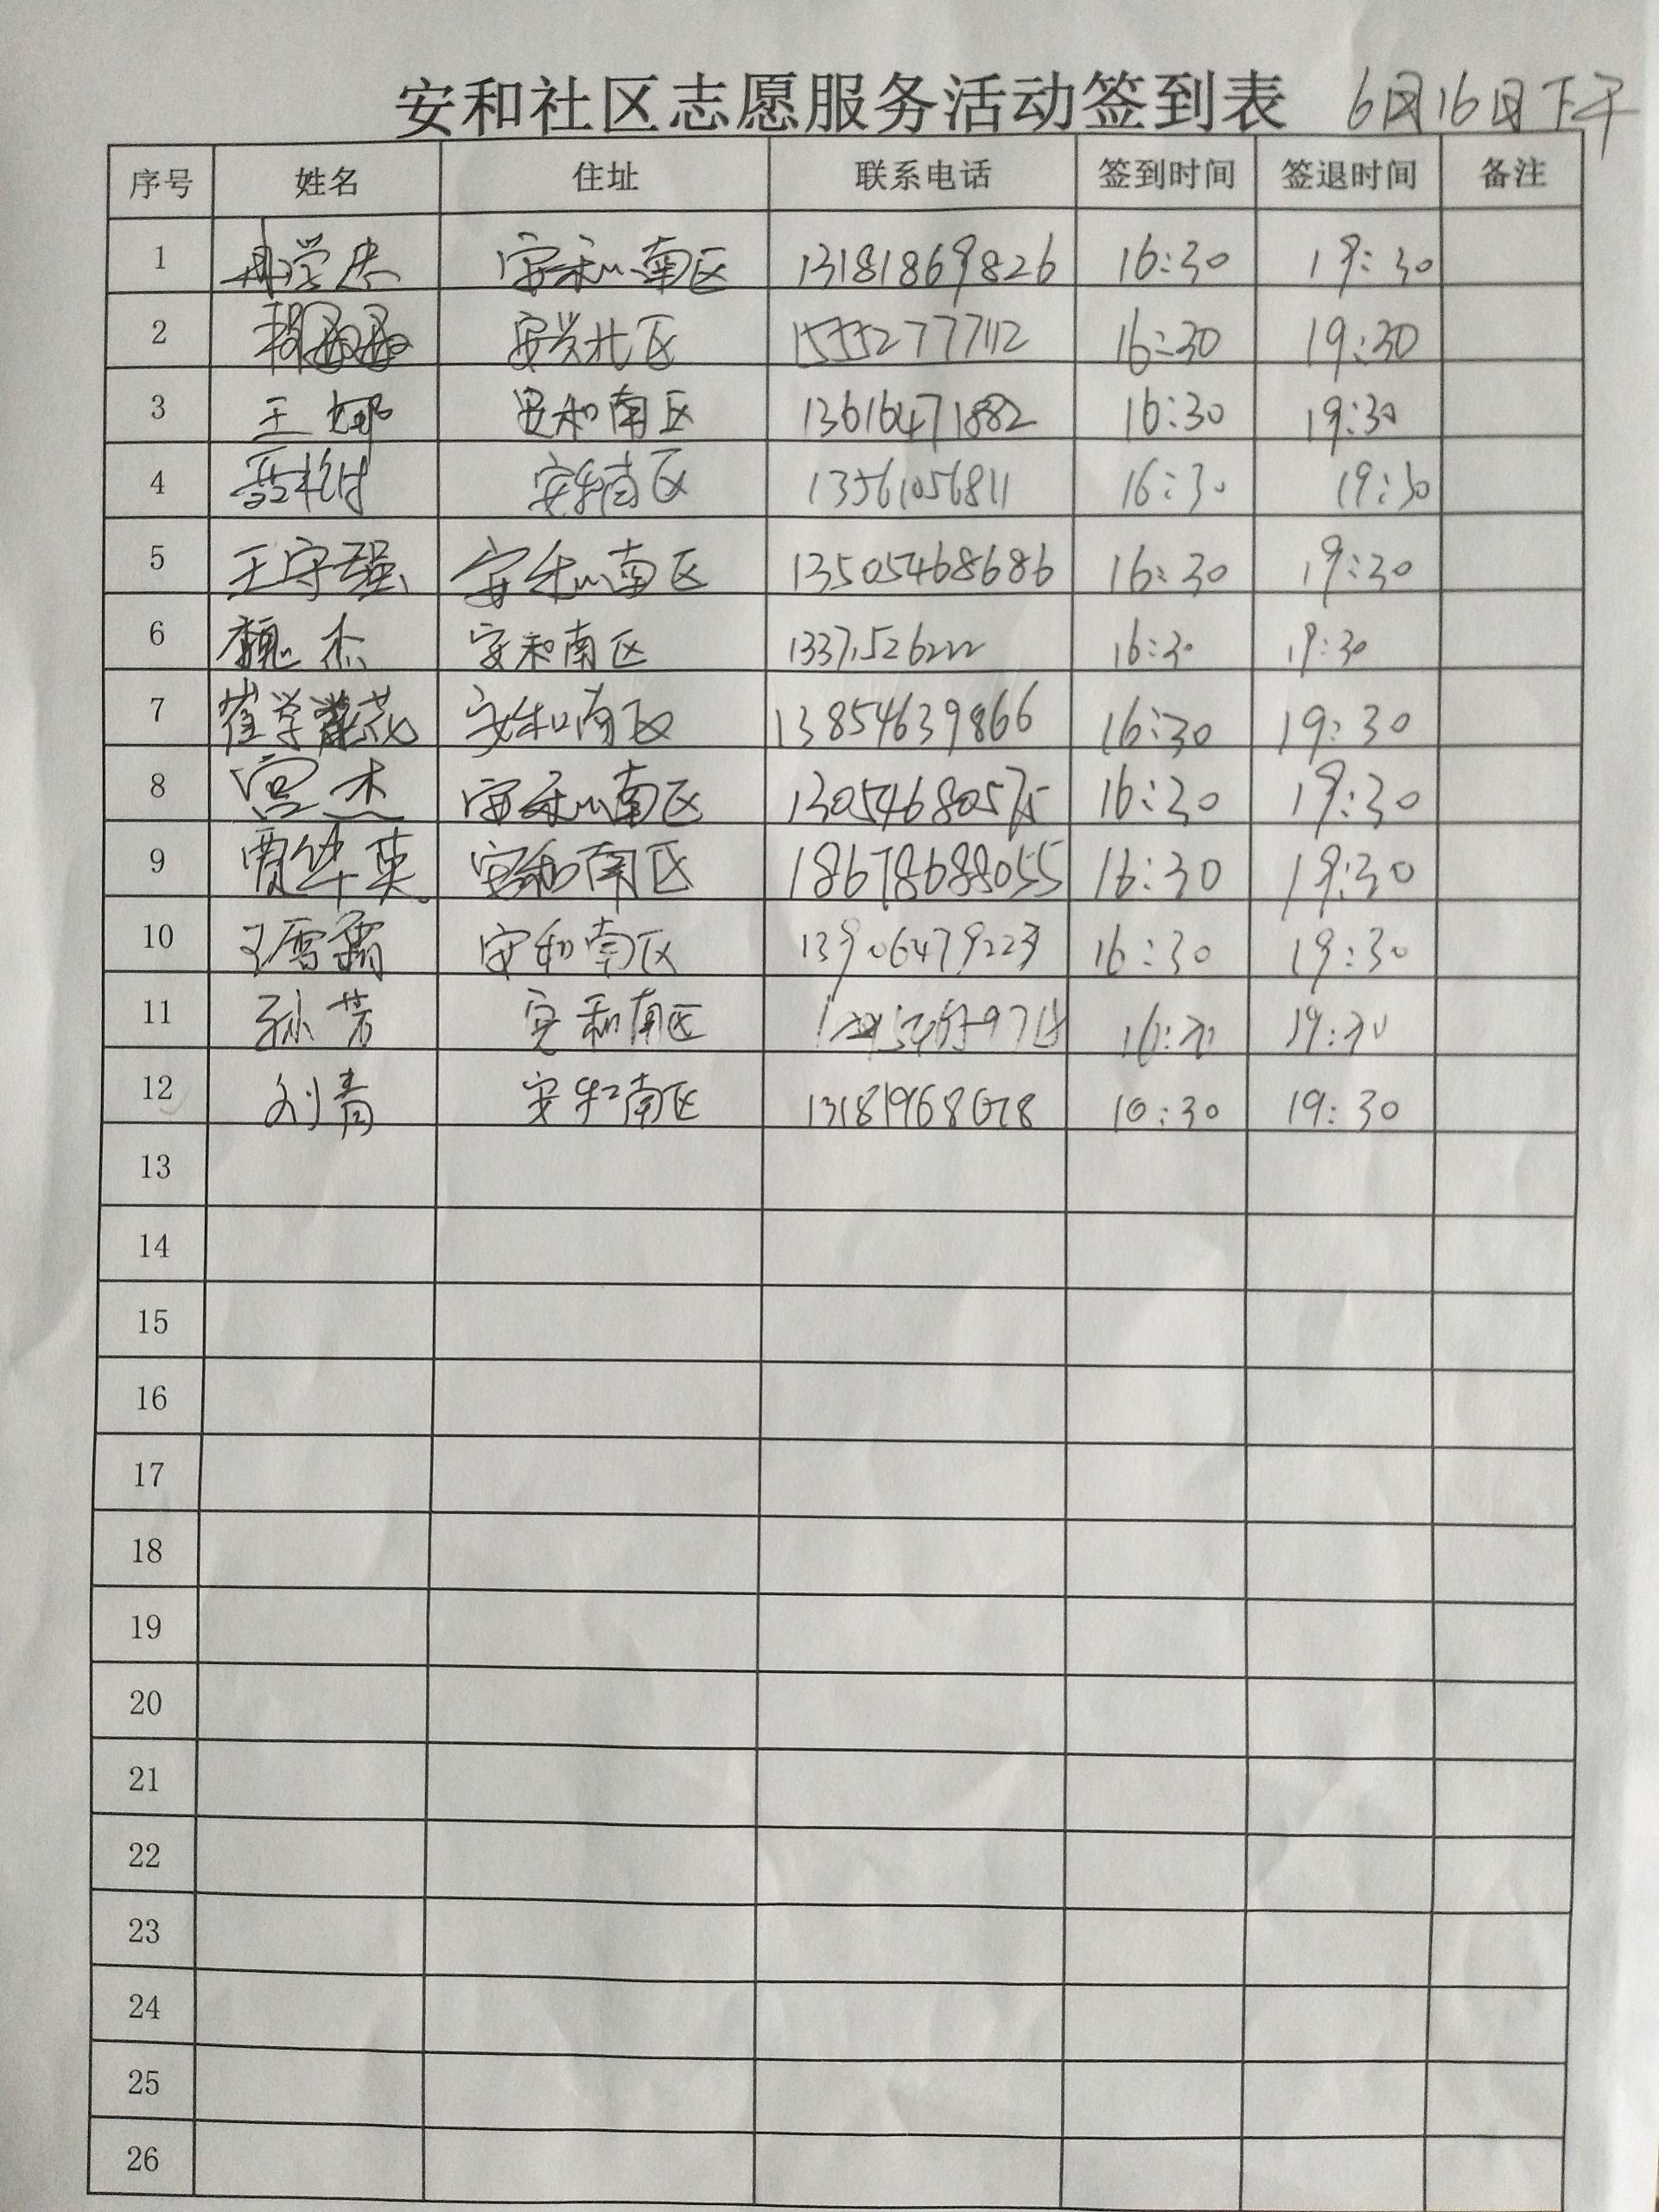 安和社区志愿服务活动签到表 6月16日下午
序号 姓名 住址 联系电话 签到时间 签退时间 备注
1 安和南区 13181869826 16:30 19:30
2 安兴北区 15552777112 16:30 19:30
3 王娜 安和南区 13616471882 16:30 19:30
4 安和南区 13561056811 16:30 19:30
5 王守强 安和南区 13505468686 16:30 19:30
6 魏杰 安和南区 13371526222 16:30 19:30
7 崔学 安和南区 13854639866 16:30 19:30
8 宫杰 安和南区 13054680575 16:30 19:30
9 贾华英 安和南区 18678688055 16:30 19:30
10 王雪霜 安和南区 13906479223 16:30 19:30
11 孙芳 安和南区 16:30 19:30
12 刘青 安和南区 13181968678 16:30 19:30
13
14
15
16
17
18
19
20
21
22
23
24
25
26